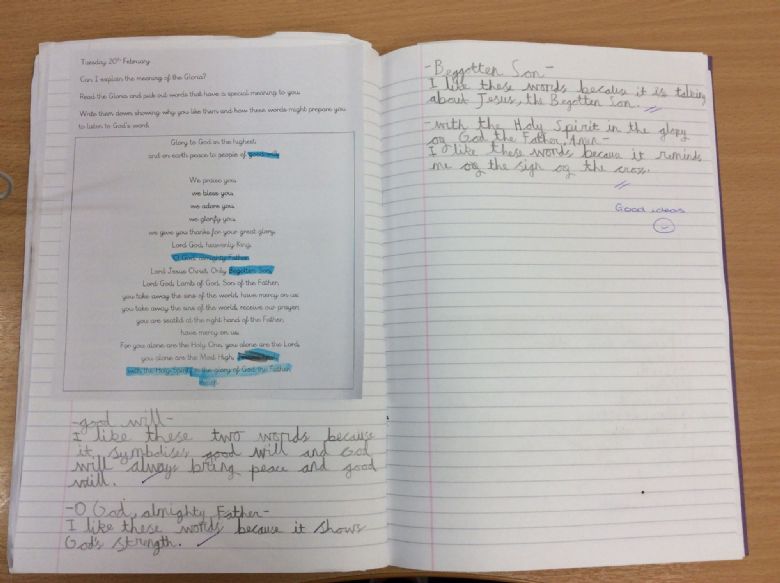 Tuesday 20th February
Can I explain the meaning of the Gloria?
Read the Gloria and pick out words that have a special meaning to you.
Write them down showing why you like them and how these words might prepare you
to listen to God's word.
Glory to God in the highest,
and on earth peace to people of good will.
We praise you,
we bless you,
we adore you,
we glorify you,
we give you thanks for your great glory,
Lord God, heavenly King,
O God, almighty Father.
Lord Jesus Christ, Only Begotten Son,
Lord God, Lamb of God, Son of the Father,
you take away the sins of the world, have mercy on us;
you take away the sins of the world, receive our prayer;
you are seated at the right hand of the Father,
have mercy on us.
For you alone are the Holy One, you alone are the Lord,
you alone are the Most High,
with the Holy Spirit in the glory of God the Father.
-good will-
I like these two words because
it symbolises good will and God
will always bring peace and good
will.
-O God, almighty Father-
I like these words because it shows
God's strength.
-Beggotten Son-
I like these words because it is talking
about Jesus, the Begotten Son.
-with the Holy Spirit in the glory
of God the Father,
I like these words becaue it reminds
me of the sign of the cross.
Good ideas